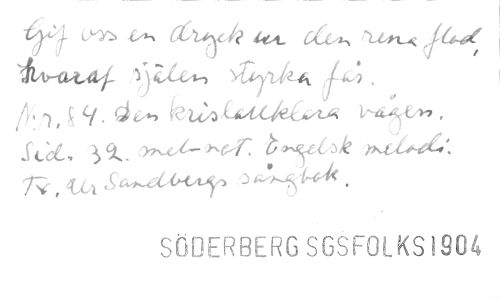 Gif oss en dryck ur den rena flod,
hvaraf själen styrka fås.
Nr. 84. Den kristallklara vågen.
Sid. 32. mel-not. Engelsk melodi.
Tx. ur Sandbergs sångbok.
SÖDERBERG SGSFOLKS1904